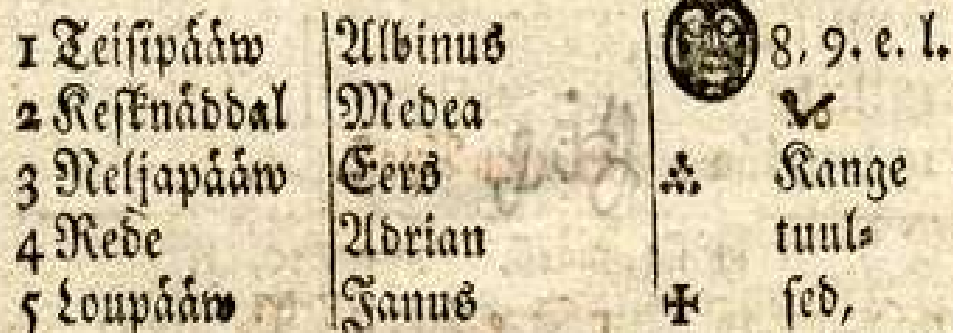 1 Teisipääw Albinus 8, 9. e. l.
2 Kesknäddal Medea
3 Neljapääw Eers Kange
4 Rede Adrian tuul⸗
5 Loupääw Janus sed,